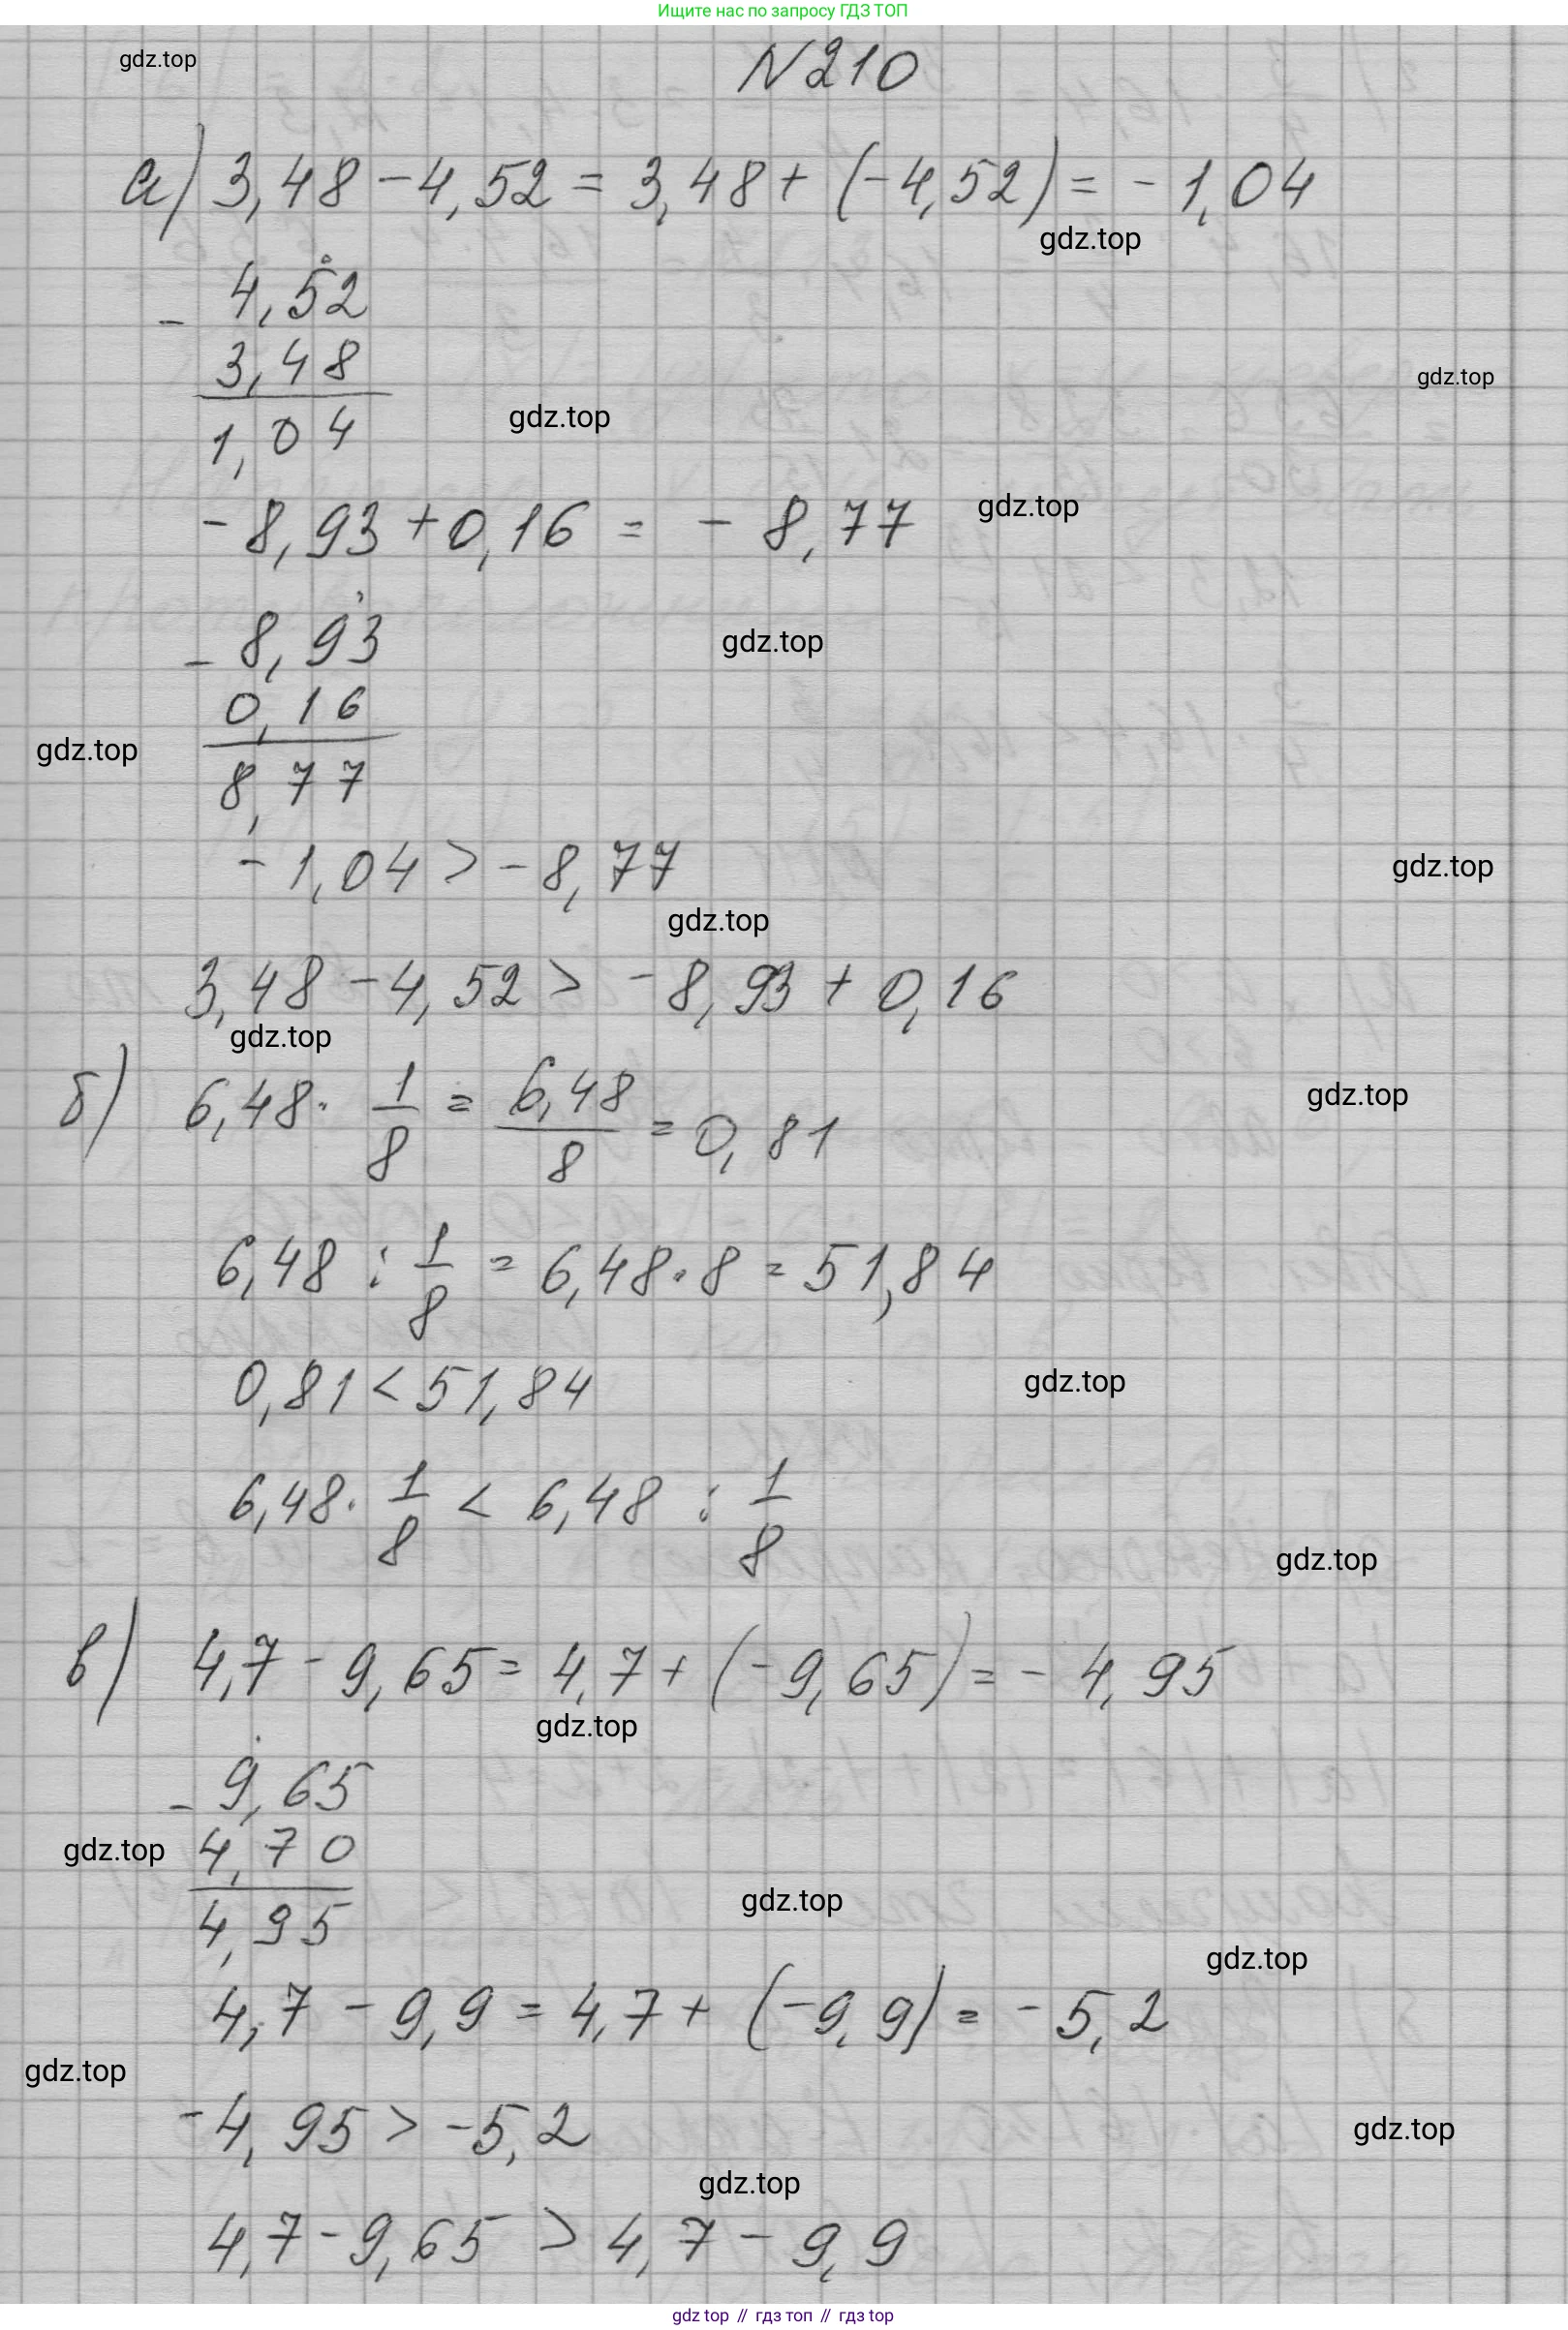 Ищите нас по запросу ГДЗ ТОП
gdz.top
N 210
а) 3,48 - 4,52 = 3,48 + (-4,52) = - 1,04
gdz.top
- 4,52
3,48
gdz.top
1,04
gdz.top
- 8,93 + 0,16 = - 8,77
gdz.top
- 8,93
gdz.top
0,16
gdz.top
8,77
- 1,04 > - 8,77
gdz.top
gdz.top
3,48 - 4,52 > - 8,93 + 0,16
gdz.top
б) 6,48 · 1/8 = 6,48/8 = 0,81
gdz.top
6,48 : 1/8 = 6,48 · 8 = 51,84
0,81 < 51,84
gdz.top
6,48 · 1/8 < 6,48 : 1/8
gdz.top
в) 4,7 - 9,65 = 4,7 + (-9,65) = - 4,95
gdz.top
- 9,65
4,70
gdz.top
4,95
gdz.top
gdz.top
4,7 - 9,9 = 4,7 + (-9,9) = - 5,2
gdz.top
-4,95 > -5,2
gdz.top
gdz.top
4,7 - 9,65 > 4,7 - 9,9
gdz top // гдз топ // гдз top